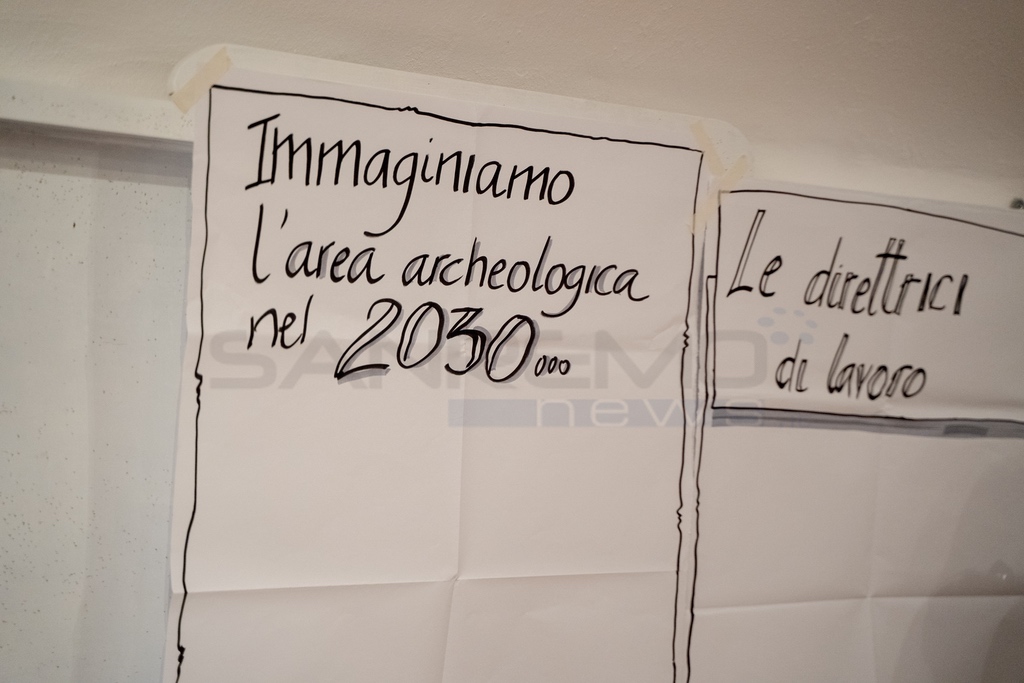 Immaginiamo
l'area archeologica
nel 2030...
Le direttrici
di lavoro
SANREMO
news